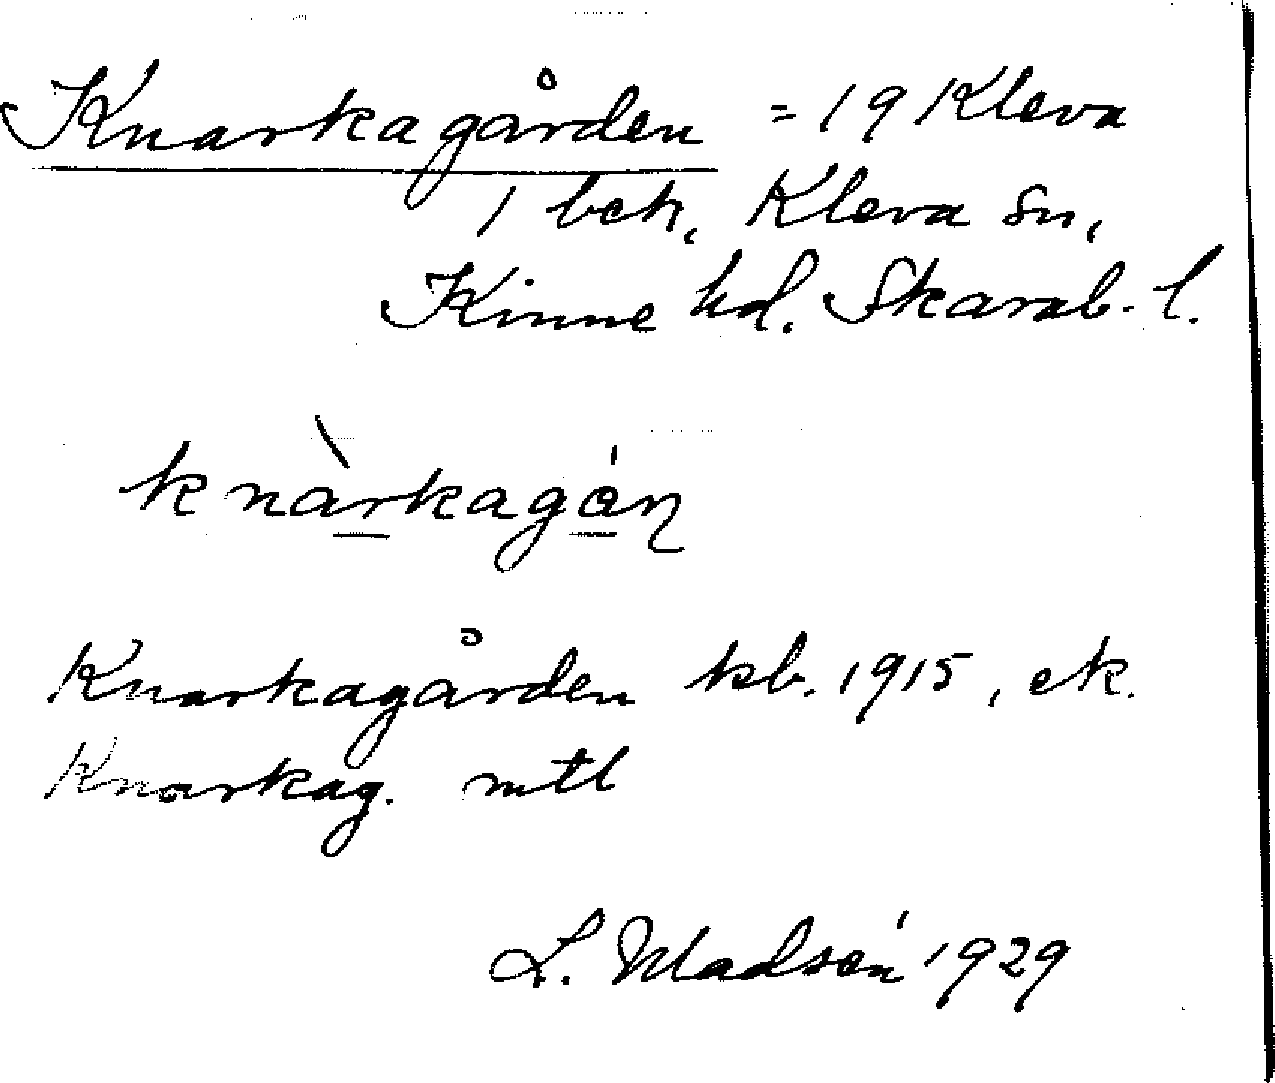 Knarkagården = 19 Kleva
1 bek, Kleva sn,
Kinne hd. Skarab. l.
knàrkagán
Knarkagården kb. 1915, ek.
Knarkag. mtl
L. Madsén 1929